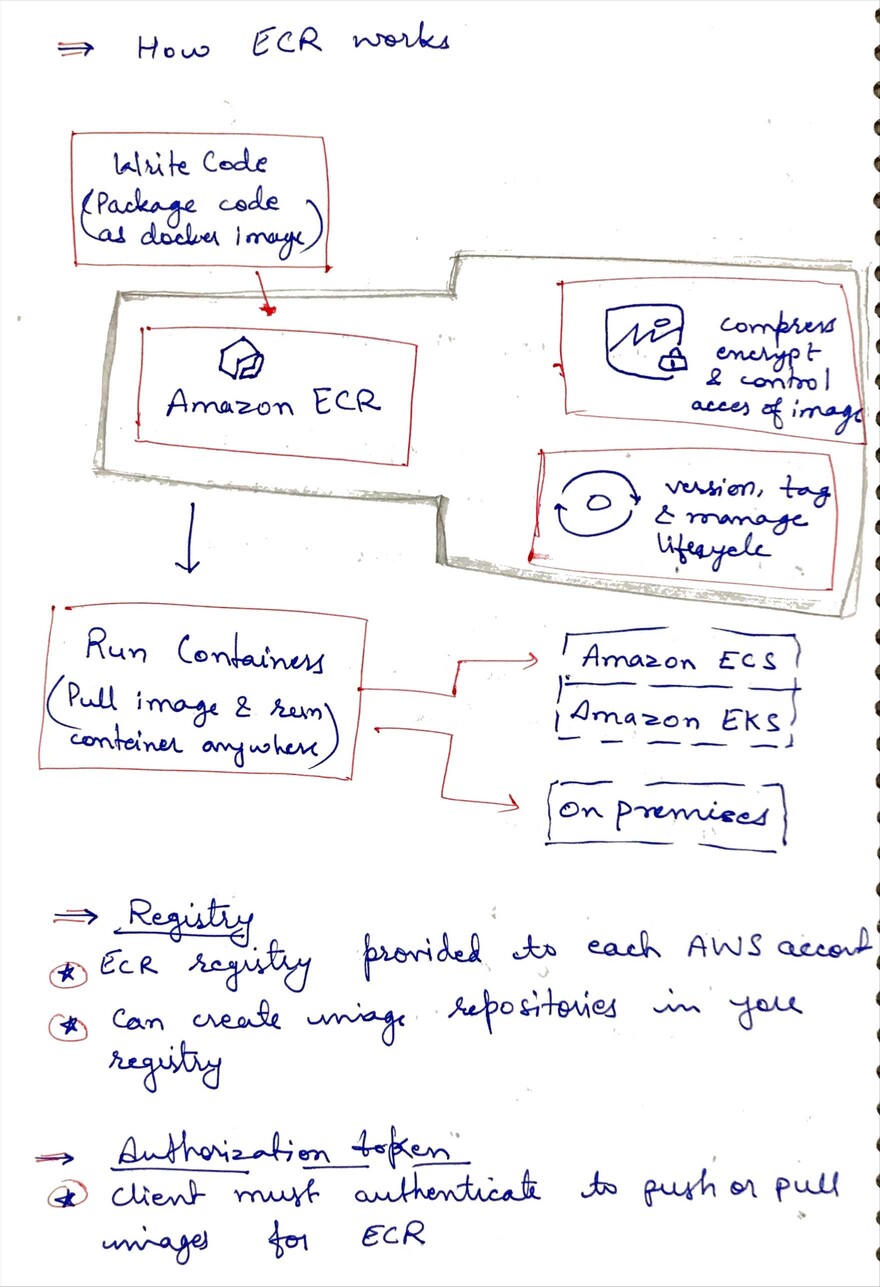 ⇒ How ECR works
Write Code
(Package code
as docker image)
Amazon ECR
compress
encrypt
& control
acces of image
version, tag
& manage
lifecycle
Run Containers
(Pull image & run
container anywhere)
Amazon ECS
Amazon EKS
On premises
⇒ Registry
★ ECR registry provided to each AWS accont
★ Can create image repositories in your
registry
⇒ Authorization token
★ Client must authenticate to push or pull
images for ECR